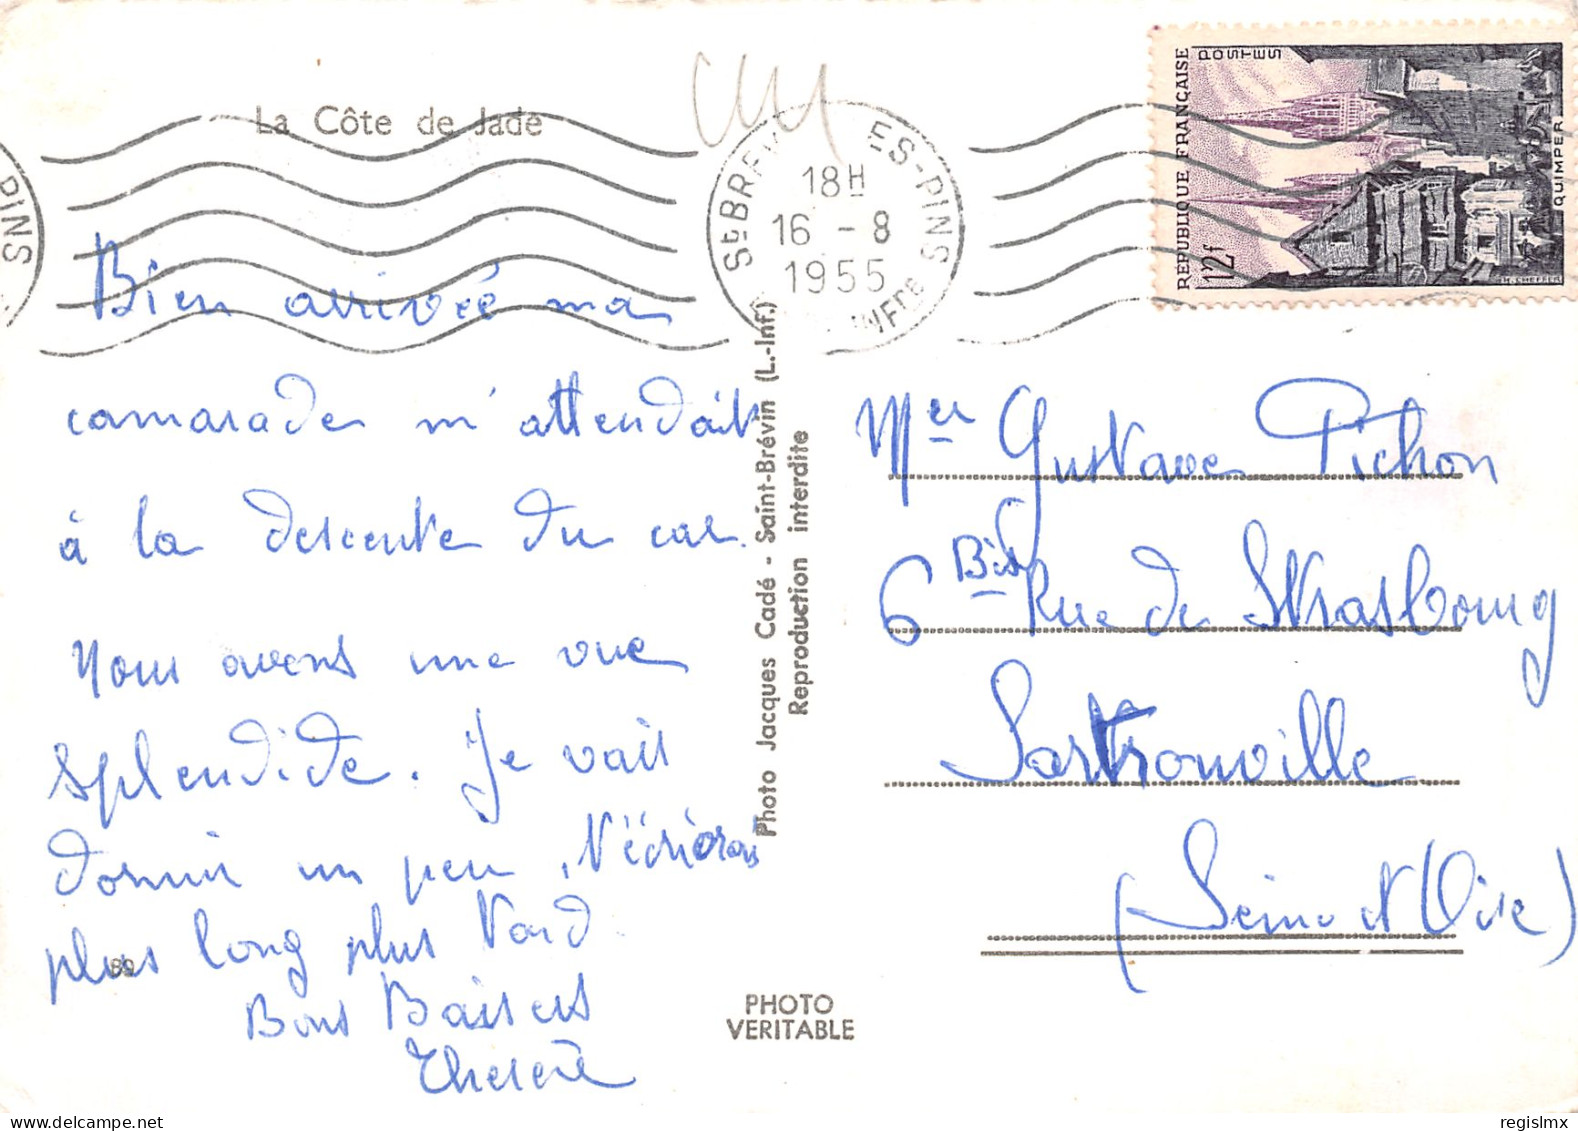 La Côte de Jade
Bien arrivée ma
camarade m'attendait
à la descente du car.
Nous avons une vue
splendide. Je vais
dormir un peu. T'écrirai
plus long plus tard
Bons Baisers
Thérèse
89
PINS
St BREV ES-PINS
18H
16 - 8
1955
INFRE
RÉPUBLIQUE FRANÇAISE
POSTES
12f
QUIMPER
Photo Jacques Cadé - Saint-Brévin (L.-Inf.)
Reproduction interdite
PHOTO
VERITABLE
Gustave Pichon
6 Bis Rue de Strasbourg
Sartrouville
(Seine et Oise)
regislmx